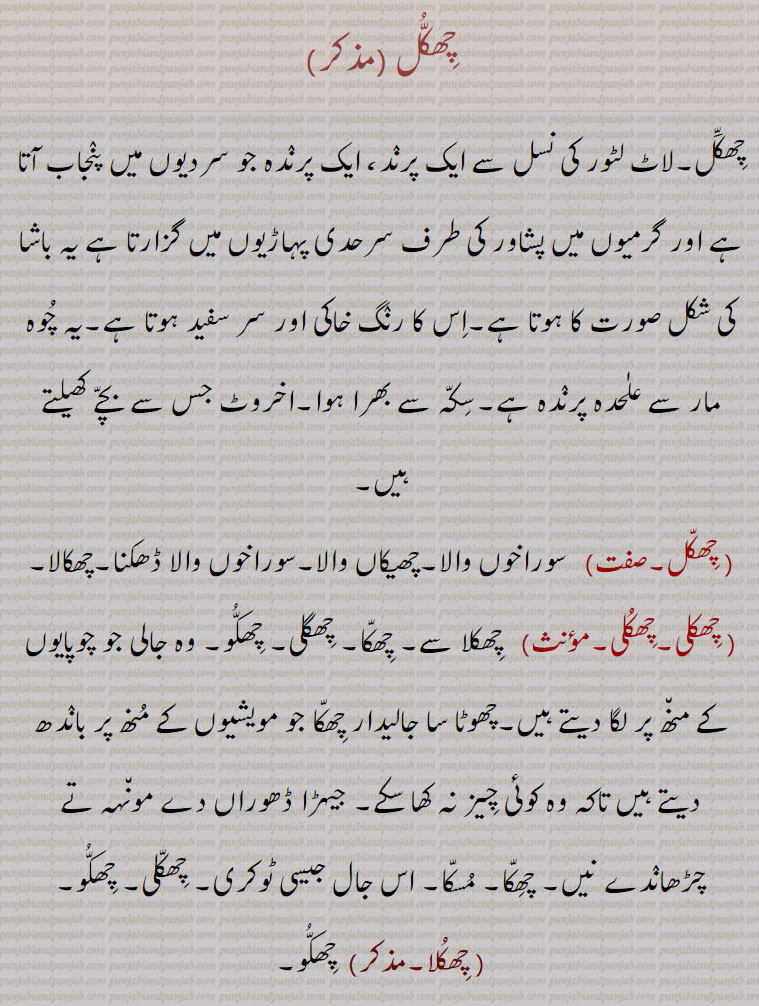 چِھکُّل (مذکر)
چِھکَّل۔لاٹ لٹور کی نسل سے ایک پرنْد، ایک پرنْدہ جو سردیوں میں پنْجاب آتا
ہے اور گرمیوں میں پشاور کی طرف سرحدی پہاڑیوں میں گزارتا ہے یہ باشا
کی شکل صورت کا ہوتا ہے۔اِس کا رنْگ خاکی اور سر سفید ہوتا ہے۔یہ چُوہ
مار سے علٰحدہ پرنْدہ ہے۔سِکّہ سے بھرا ہوا۔اخروٹ جس سے بچّے کھیلتے
ہیں۔
(چِھکّل۔صفت) سوراخوں والا۔چھیکاں والا۔سوراخوں والا ڈھکنا۔چھکالا۔
(چِھکلی۔چِھکُلی۔مؤنث) چِھکلا سے۔چِھکّا۔چِھگلی۔چِھکُّو۔ وہ جالی جو چوپایوں
کے منھّ پر لگا دیتے ہیں۔چھوٹا سا جالیدار چِھکّا جو مویشیوں کے مُنھ پر بانْدھ
دیتے ہیں تاکہ وہ کوئی چِیز نہ کھا سکے۔ جیہڑا ڈھوراں دے مونْہہ تے
چڑھانْدے نیں۔چِھکّا۔ مُسکّا۔ اس جال جیسی ٹوکری۔چِھکّلی۔چِھکُّو۔
(چِھکُلا۔مذکر) چِھکُّو۔